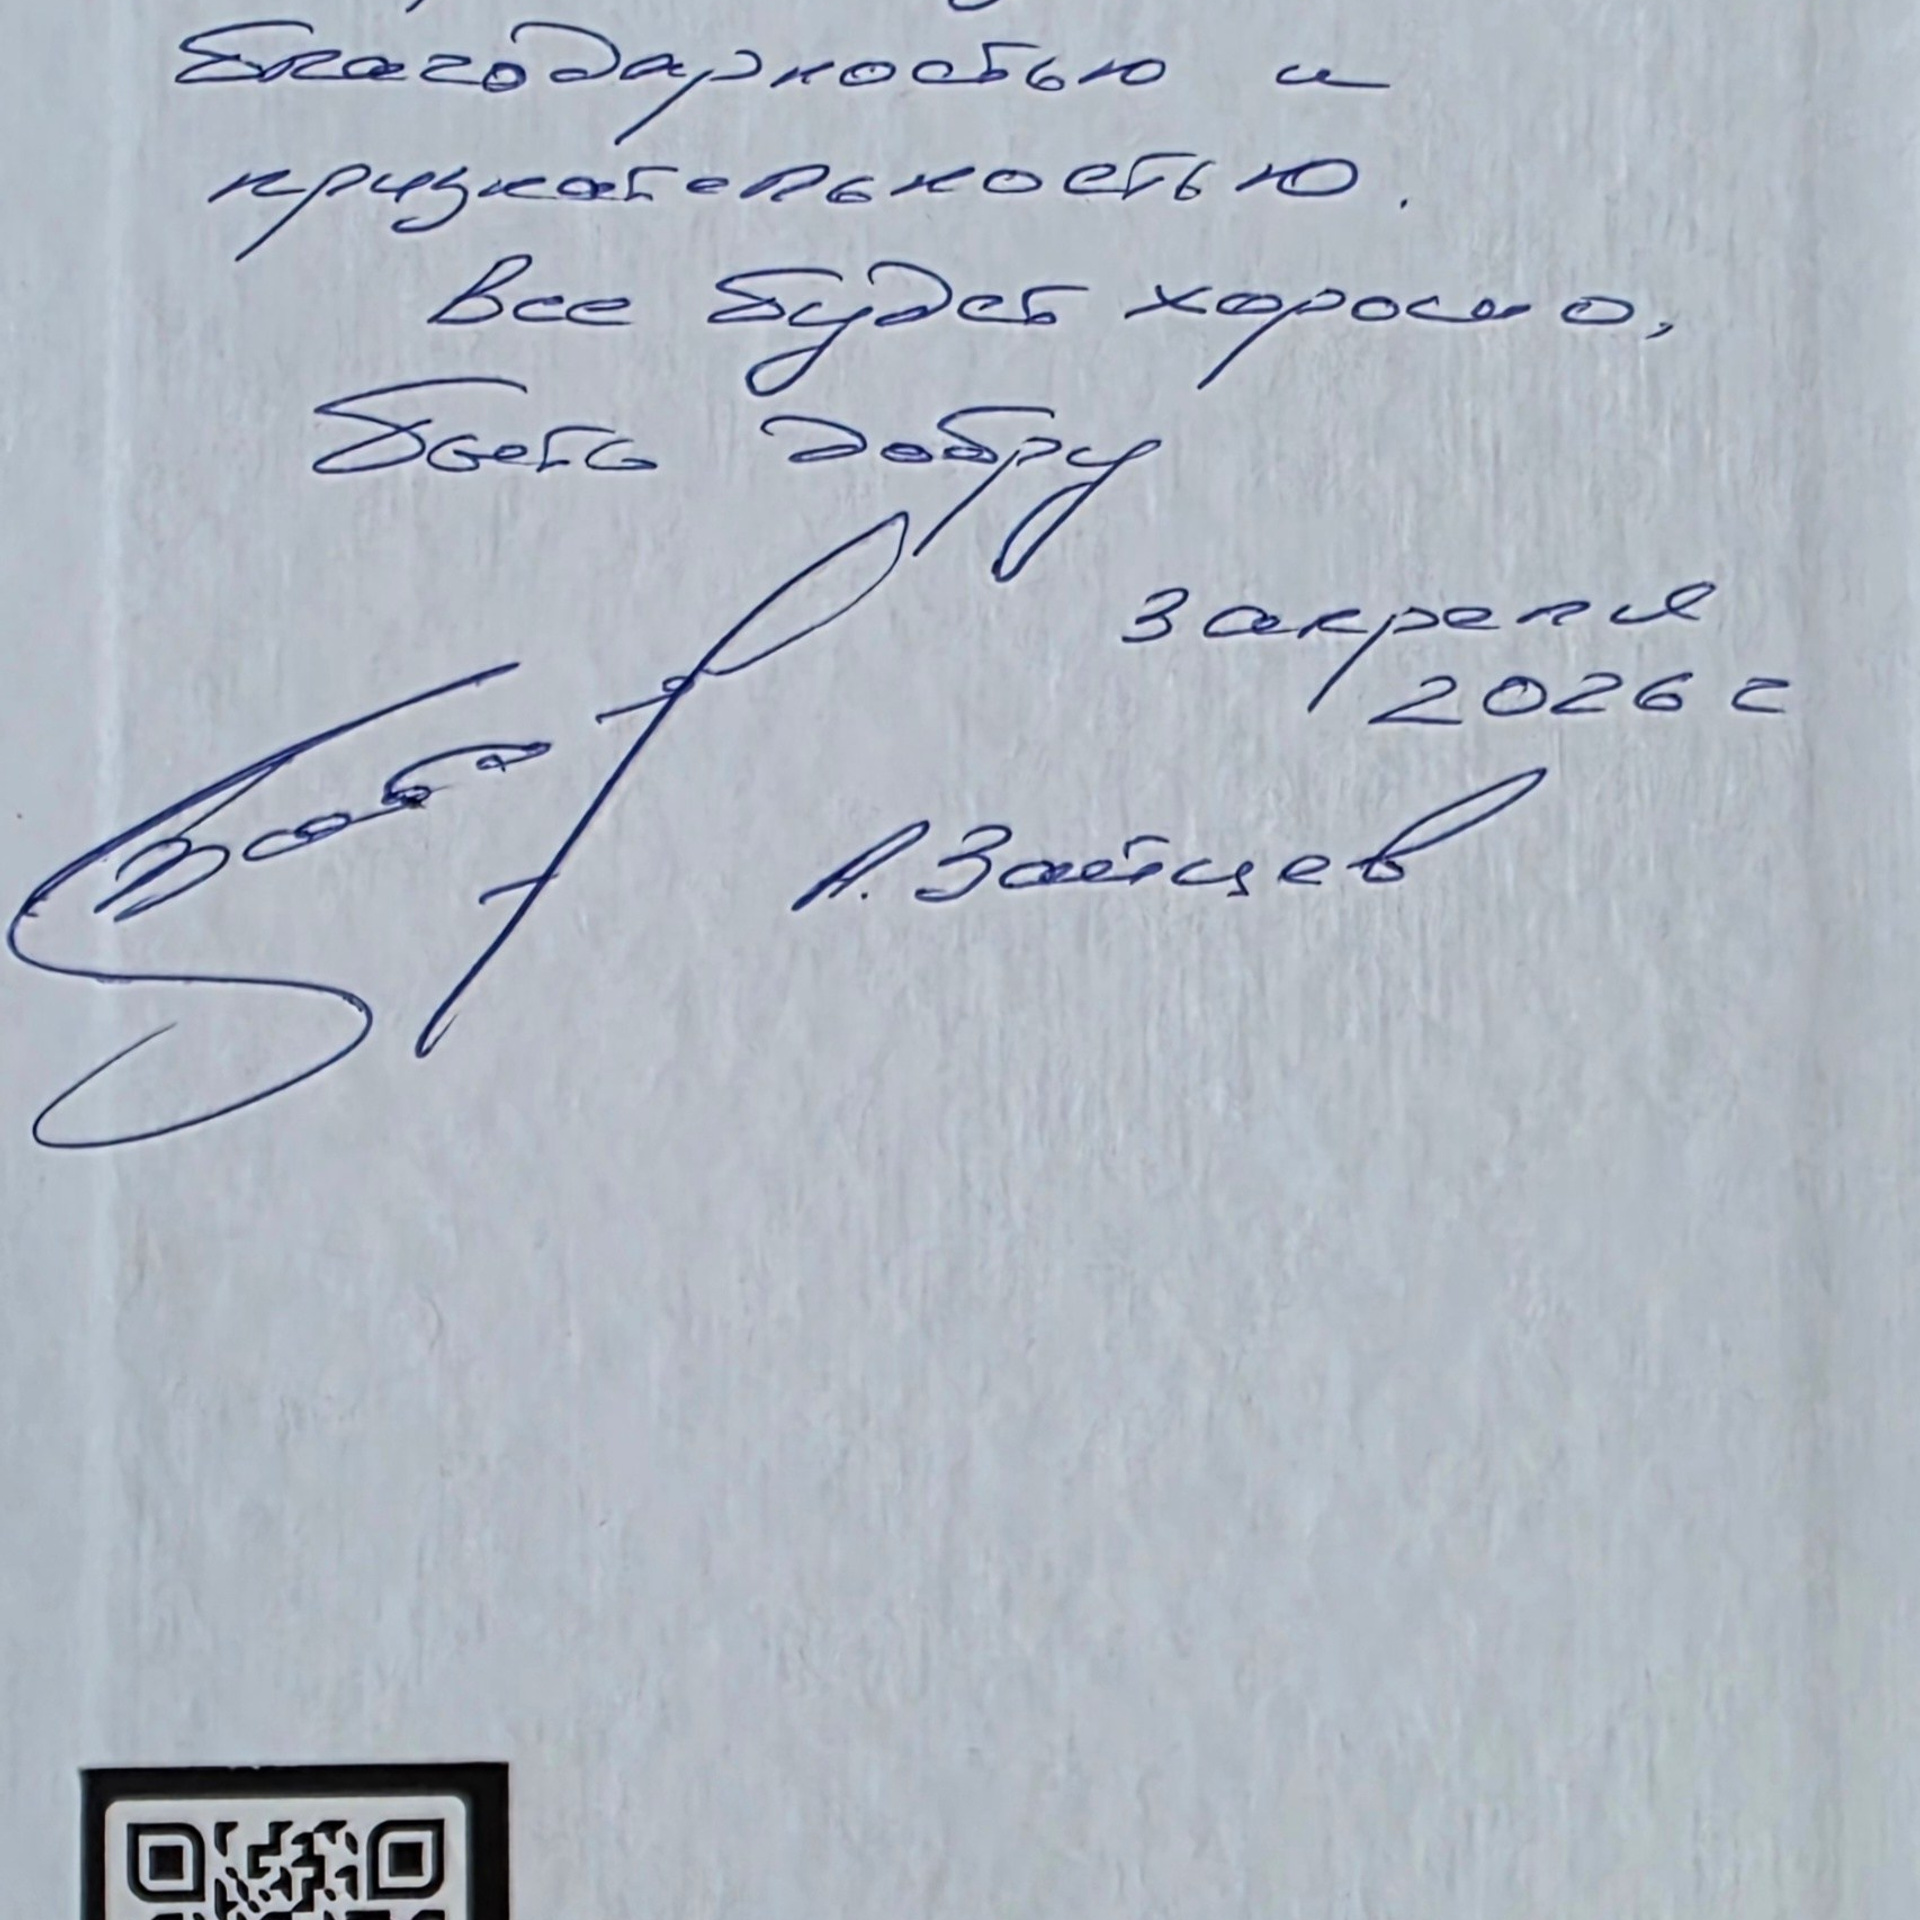 благодарностью и
признательностью.
Все будет хорошо,
быть добру
3 апреля
2026 г
А. Зайцев